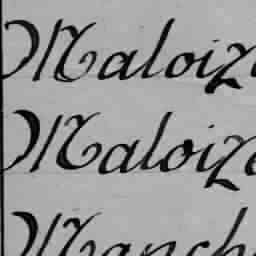 Maloize
Maloize
Manch